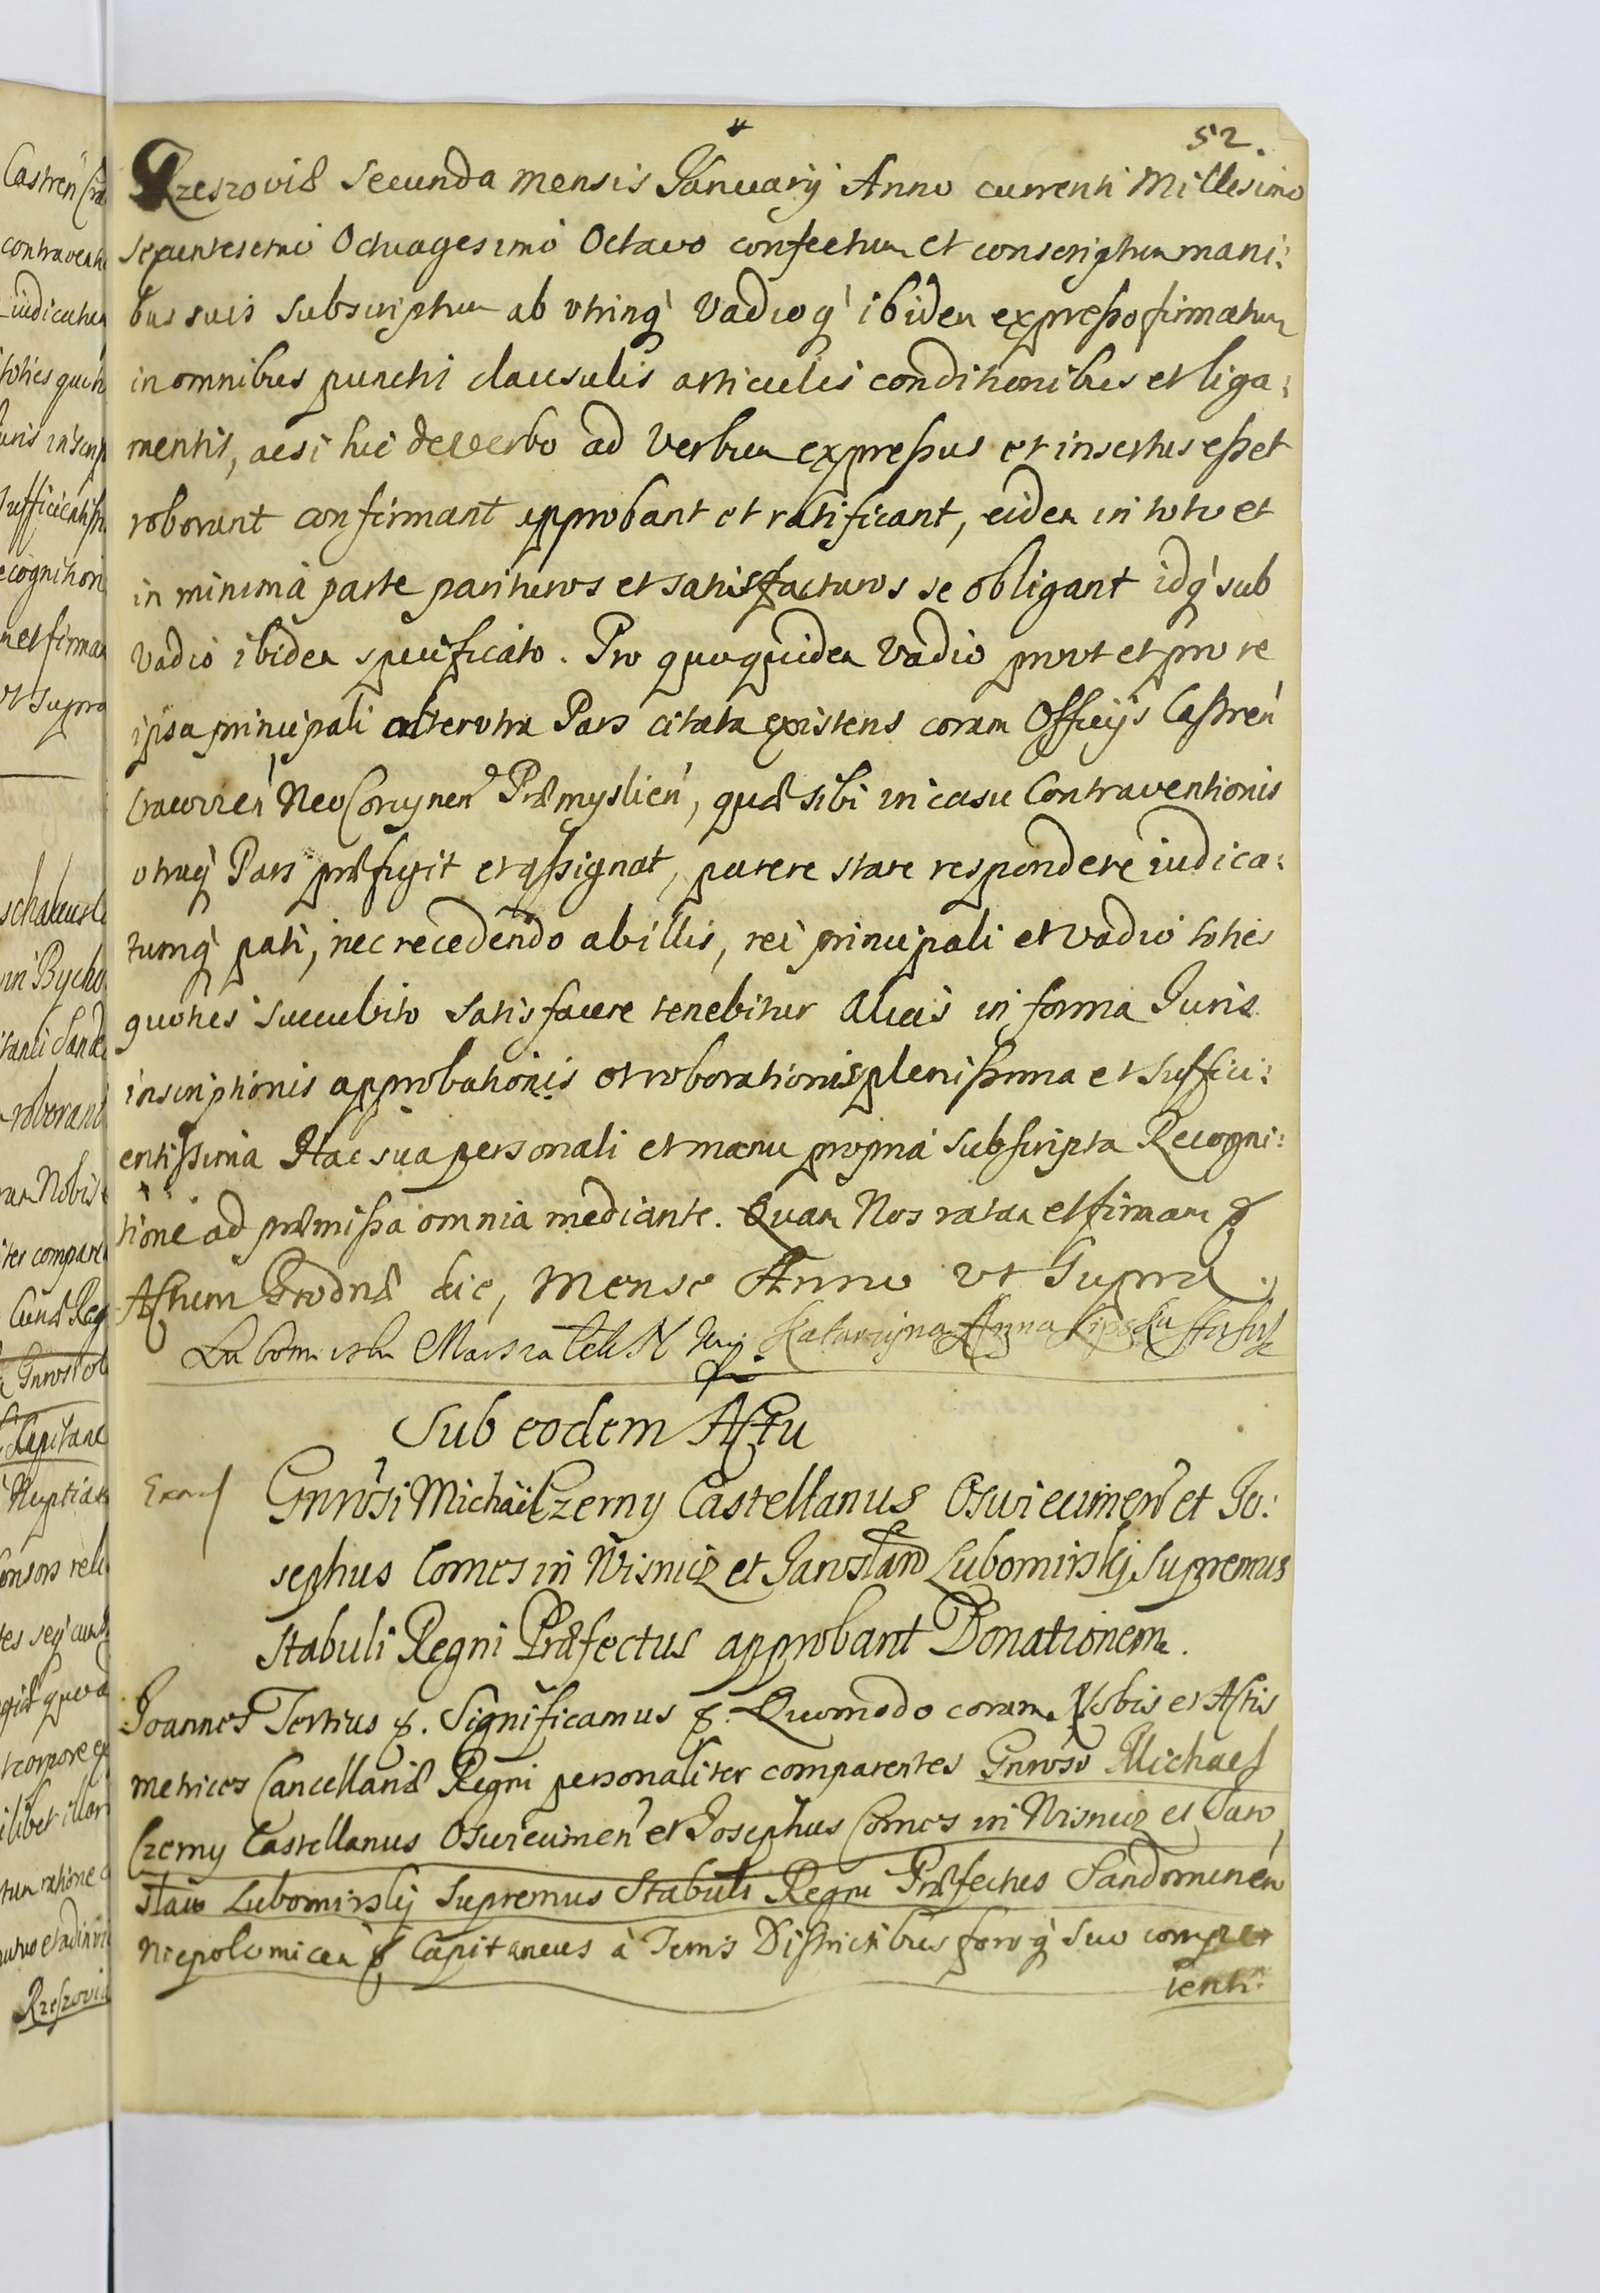 52.
Rzeszoviæ secunda mensis Januarij Anno currenti Millesimo
sepuntesimo Octuagesimo Octavo confectum et conscriptum mani:
bus suis subscriptum ab utrinq' vadioq' ibidem expresso firmatum
in omnibus punctis clausulis articulis conditionibus et liga:
mentis, acsi hic de verbo ad verbum expressus et insertus esset
roborant confirmant approbant et ratificant, eidem in toto et
in minima parte parituros et satisfacturos se obligant idq' sub
vadio ibidem specificato. Pro quoquidem vadio prout et pro re
ipsa principali alterutra Pars citata existens coram Officijs Castren'
Cracovien' NeoCorcynen' Præmyslien', quæ sibi in casu Contraventionis
utraq' Pars præfigit et assignat, parere stare respondere iudica:
tumq' pati, nec recedendo ab illis, rei principali et vadio toties
quoties succubito satisfacere tenebitur in forma Juris
inscriptionis approbationis et roborationis plenissima et suffici:
entissima Hac sua personali et manu propria subscripta Recogni:
tione ad præmissa omnia mediante. Quam Nos ratam et firmam &
Actum Grodnæ die, Mense Anno ut Supra.
Lubomirski Marszalek N Katarzyna Anna
Sub eodem Actu
Gnrosi Michaël Czerny Castellanus Oswiecimen' et Jo:
sephus Comes in Wisnicz et Jaroslaw Lubomirskij Supremus
Stabuli Regni Præfectus approbant Donationem.
Joannes Tertius &. Significamus &. Quomodo coram Nobis et Actis
metrices Cancellariæ Regni personaliter comparentes Gnrosi Michael
Czerny Castellanus Oswiecimen' et Josephus Comes in Wisnicz et Jaro
slaw Lubomirskij Supremus Stabuli Regni Præfectus Sandomirien'
Niepolomicen' & Capitaneus à Terris Districtibus foroq' suo compet
ienti